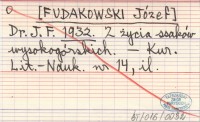 [FUDAKOWSKI Józef]
Dr. J. F. 1932. Z życia ssaków
wysokogórskich. — Kur.
Lit.-Nauk. nr 14, il.